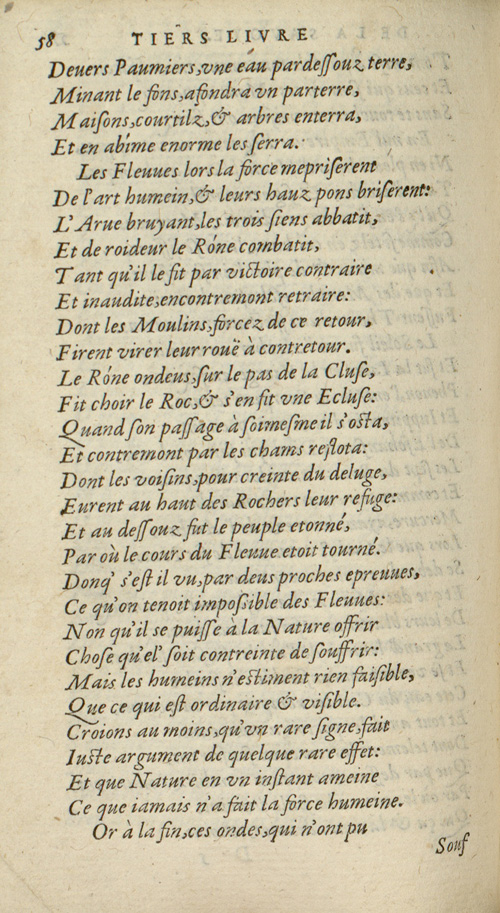 58 TIERS LIVRE
Deuers Paumiers,vne eau pardeſſouz terre,
Minant le fons,afondra vn parterre,
Maiſons,courtilz,& arbres enterra,
Et en abîme enorme les ſerra.
Les Fleuues lors la force mepriſerent
De l'art humein,& leurs hauz pons briſerent:
L'Arue bruyant,les trois ſiens abbatit,
Et de roideur le Róne combatit,
Tant qu'il le fit par victoire contraire
Et inaudite,encontremont retraire:
Dont les Moulins,forcez de ce retour,
Firent virer leur rouë à contretour.
Le Róne ondeus,ſur le pas de la Cluſe,
Fit choir le Roc,& s'en fit vne Ecluſe:
Quand ſon paſſage à ſoimeſme il s'oſta,
Et contremont par les chams reflota:
Dont les voiſins,pour creinte du deluge,
Eurent au haut des Rochers leur refuge:
Et au deſſouz fut le peuple etonné,
Par où le cours du Fleuue etoit tourné.
Donq' s'eſt il vu,par deus proches epreuues,
Ce qu'on tenoit impoſsible des Fleuues:
Non qu'il se puiſſe à la Nature offrir
Choſe qu'el' ſoit contreinte de ſouffrir:
Mais les humeins n'estiment rien faiſible,
Que ce qui eſt ordinaire & viſible.
Croions au moins,qu'vn rare ſigne,fait
Iuste argument de quelque rare effet:
Et que Nature en vn inſtant ameine
Ce que iamais n'a fait la force humeine.
Or à la fin,ces ondes,qui n'ont pu
Souf